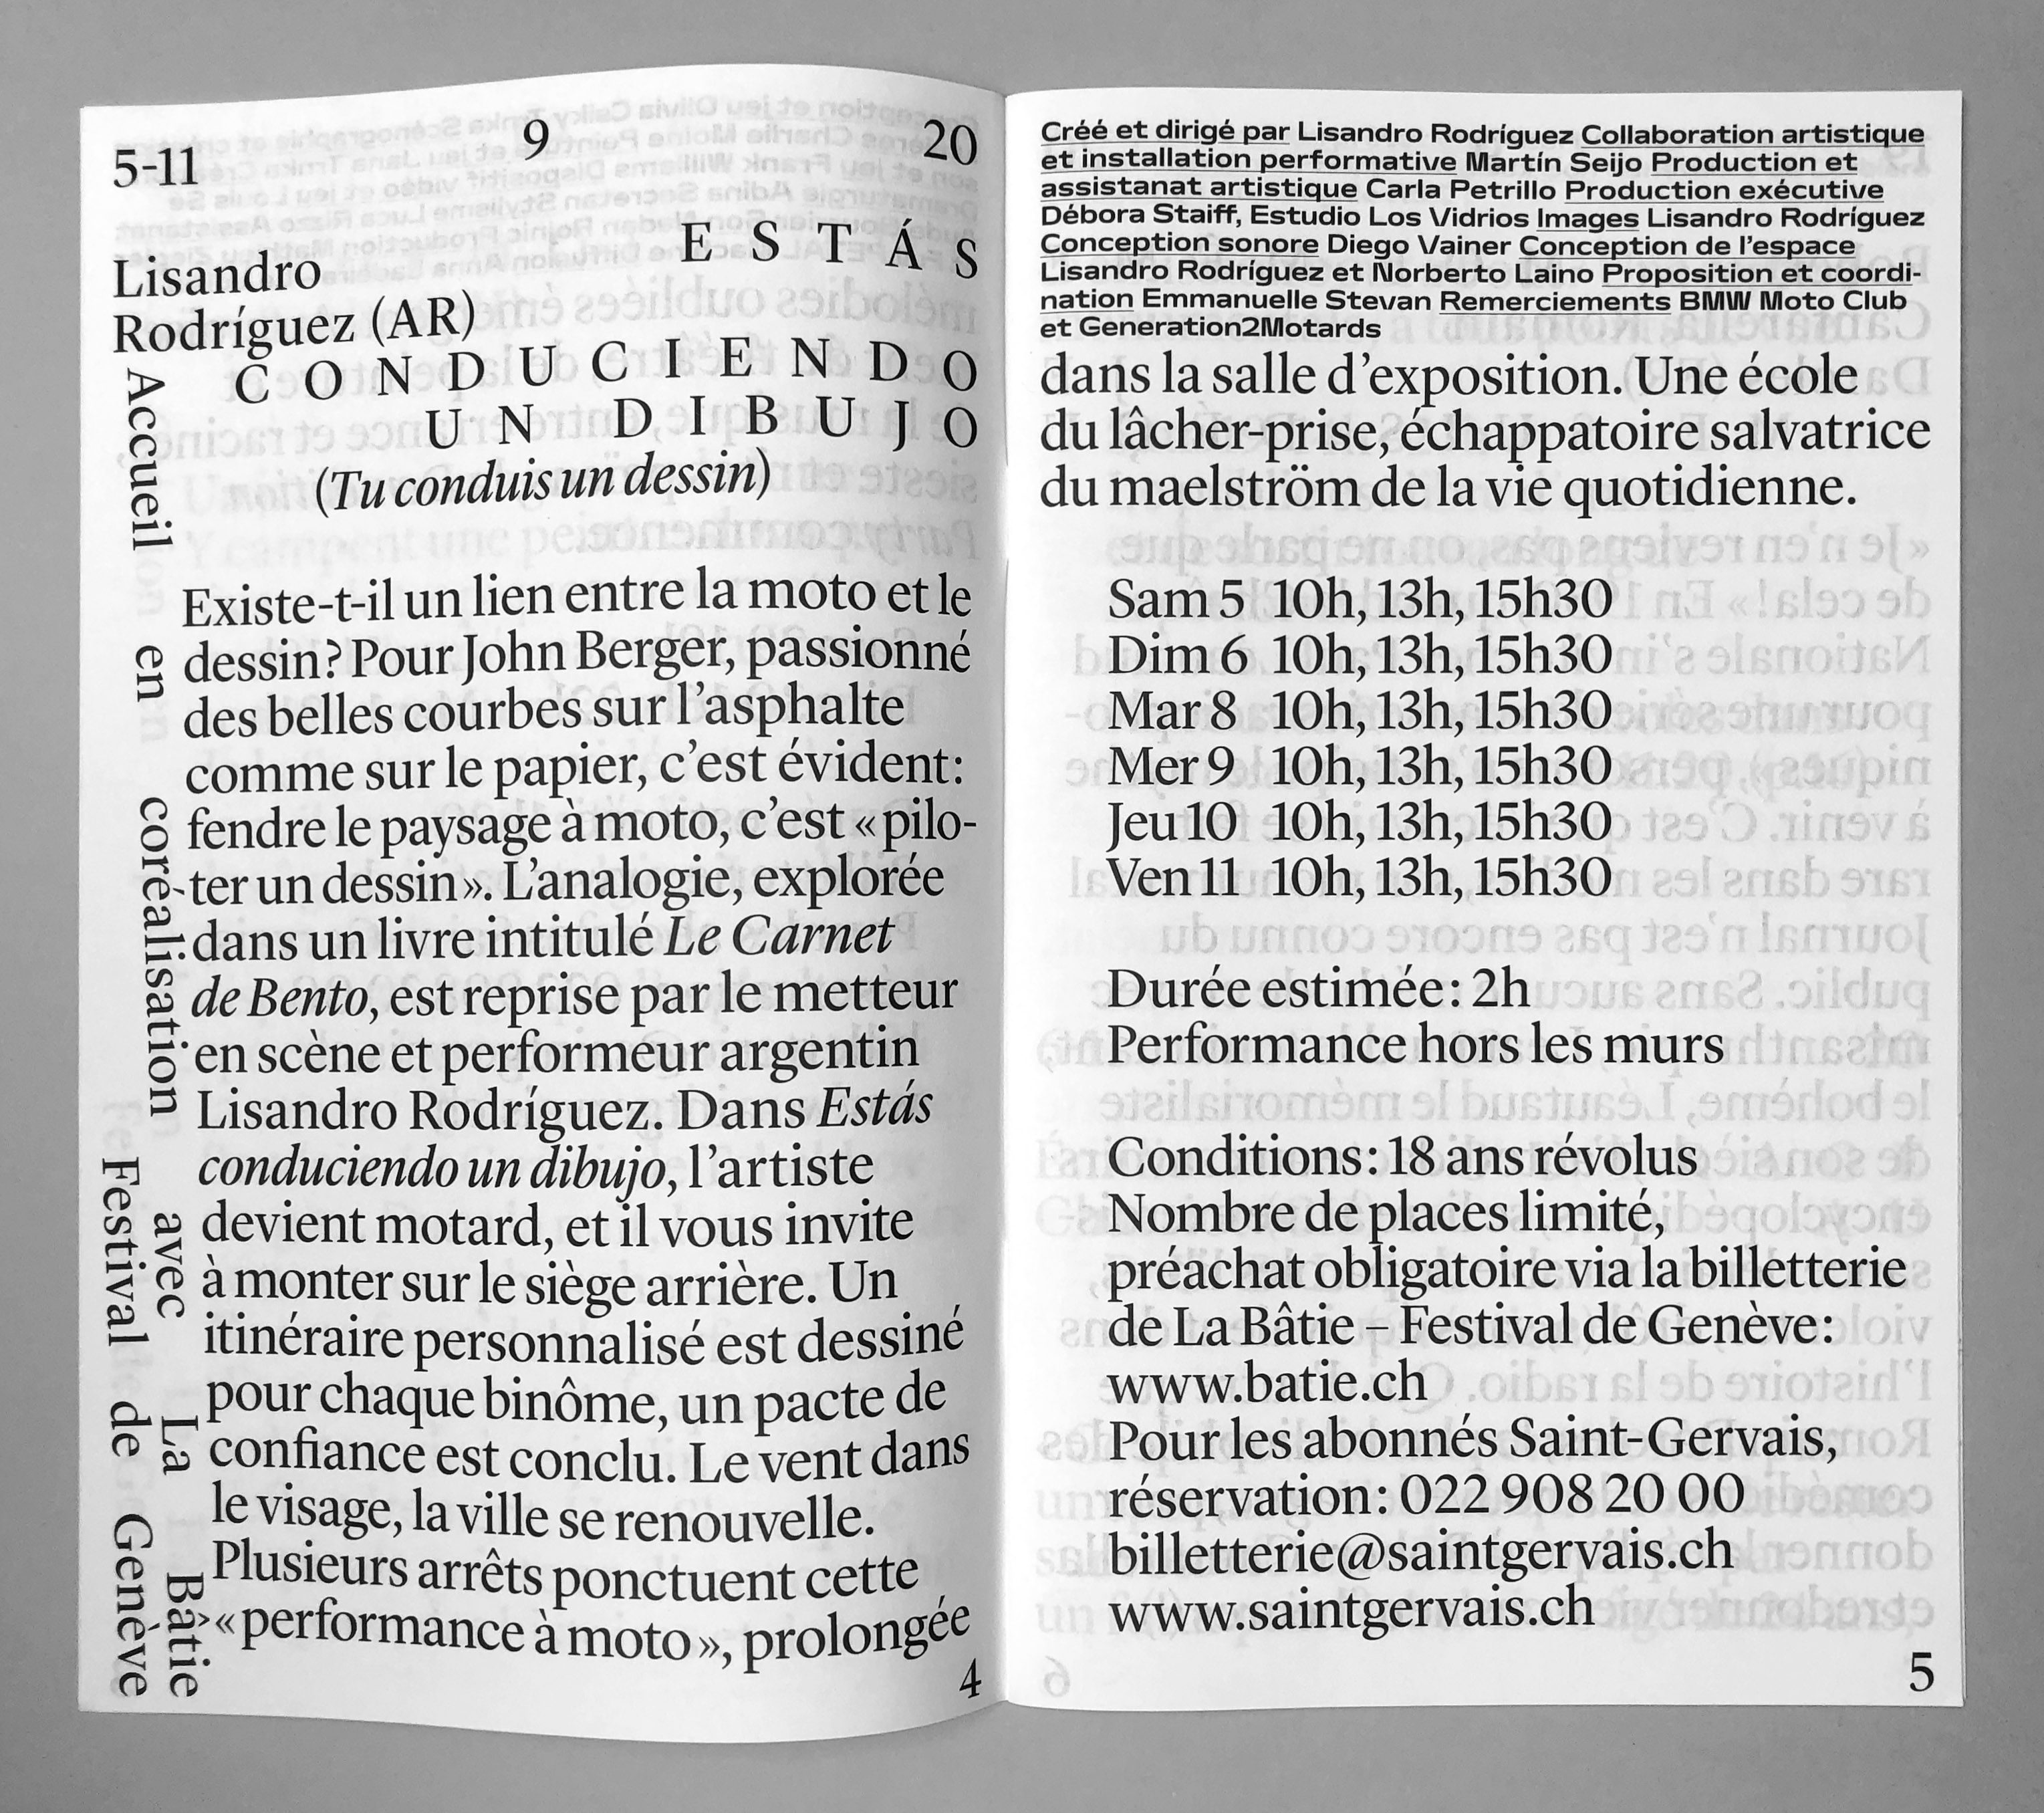 5-11 9 20
Lisandro
Rodríguez (AR)
ESTÁS
CONDUCIENDO
UN DIBUJO
(Tu conduis un dessin)
Accueil en coréalisation avec La Bâtie
Festival de Genève
Existe-t-il un lien entre la moto et le
dessin? Pour John Berger, passionné
des belles courbes sur l’asphalte
comme sur le papier, c’est évident:
fendre le paysage à moto, c’est «pilo-
ter un dessin». L’analogie, explorée
dans un livre intitulé Le Carnet
de Bento, est reprise par le metteur
en scène et performeur argentin
Lisandro Rodríguez. Dans Estás
conduciendo un dibujo, l’artiste
devient motard, et il vous invite
à monter sur le siège arrière. Un
itinéraire personnalisé est dessiné
pour chaque binôme, un pacte de
confiance est conclu. Le vent dans
le visage, la ville se renouvelle.
Plusieurs arrêts ponctuent cette
«performance à moto», prolongée
4
Créé et dirigé par Lisandro Rodríguez Collaboration artistique
et installation performative Martín Seijo Production et
assistanat artistique Carla Petrillo Production exécutive
Débora Staiff, Estudio Los Vidrios Images Lisandro Rodríguez
Conception sonore Diego Vainer Conception de l’espace
Lisandro Rodríguez et Norberto Laino Proposition et coordi-
nation Emmanuelle Stevan Remerciements BMW Moto Club
et Generation2Motards
dans la salle d’exposition. Une école
du lâcher-prise, échappatoire salvatrice
du maelström de la vie quotidienne.
Sam 5 10h, 13h, 15h30
Dim 6 10h, 13h, 15h30
Mar 8 10h, 13h, 15h30
Mer 9 10h, 13h, 15h30
Jeu 10 10h, 13h, 15h30
Ven 11 10h, 13h, 15h30
Durée estimée: 2h
Performance hors les murs
Conditions: 18 ans révolus
Nombre de places limité,
préachat obligatoire via la billetterie
de La Bâtie – Festival de Genève:
www.batie.ch
Pour les abonnés Saint-Gervais,
réservation: 022 908 20 00
billetterie@saintgervais.ch
www.saintgervais.ch
5